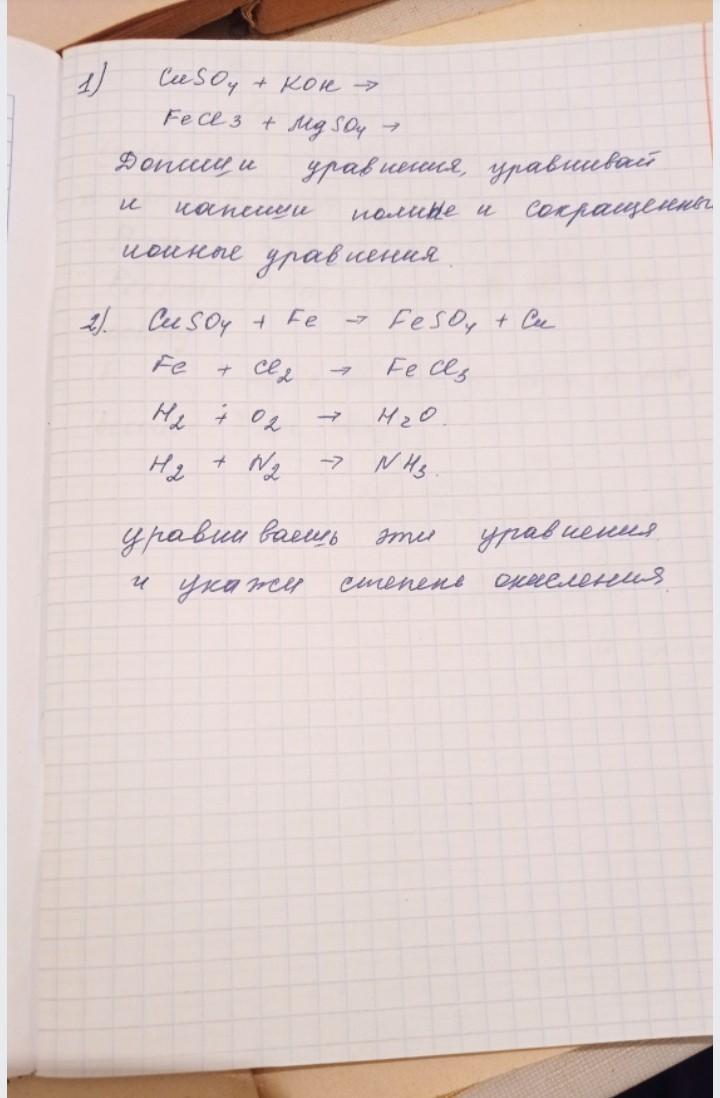 1) CuSO₄ + KOH →
FeCl3 + MgSO₄ →
Допиши уравнения, уравнивай
и напиши полные и сокращенны
ионные уравнения.
2). CuSO₄ + Fe → FeSO₄ + Cu
Fe + Cl₂ → FeCl₃
H₂ + O₂ → H₂O.
H₂ + N₂ → NH₃.
уравниваешь эти уравнения
и укажи степень окисления